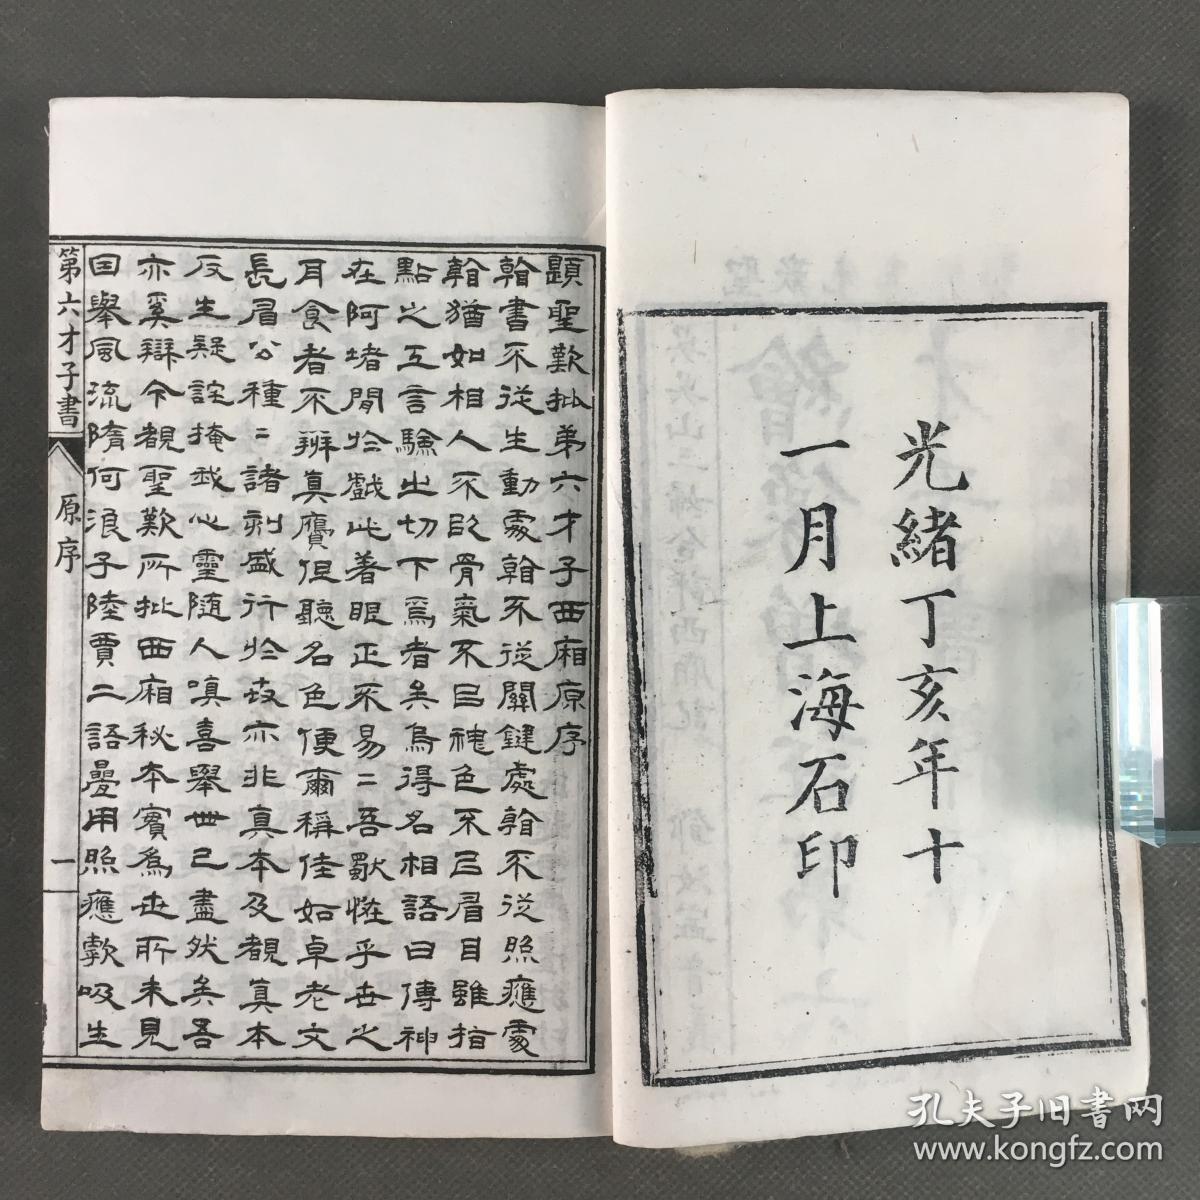 光緒丁亥年十
一月上海石印
題聖歎批第六才子西廂原序
書不從生動處看不從關鍵處看不從照應處
猶如相人不以骨氣不以神色不以眉目雖指
點之工言驗之切下焉者矣烏得名相語曰傳神
在阿堵間於戲此著眼正不易二吾獸恠乎世之
耳食者不辨真贗但聽名色便爾稱佳如卓老文
長眉公種二諸刻盛行於亦非真本及覩真本
反生疑詫掩我心靈隨人嗔喜舉世已盡然矣吾
亦奚辯今覩聖歎所批西廂秘本實為世所未見
因舉風流隋何浪子陸賈二語疊用照應呼吸生
第六才子書
原序
一
孔夫子旧書网
www.kongfz.com